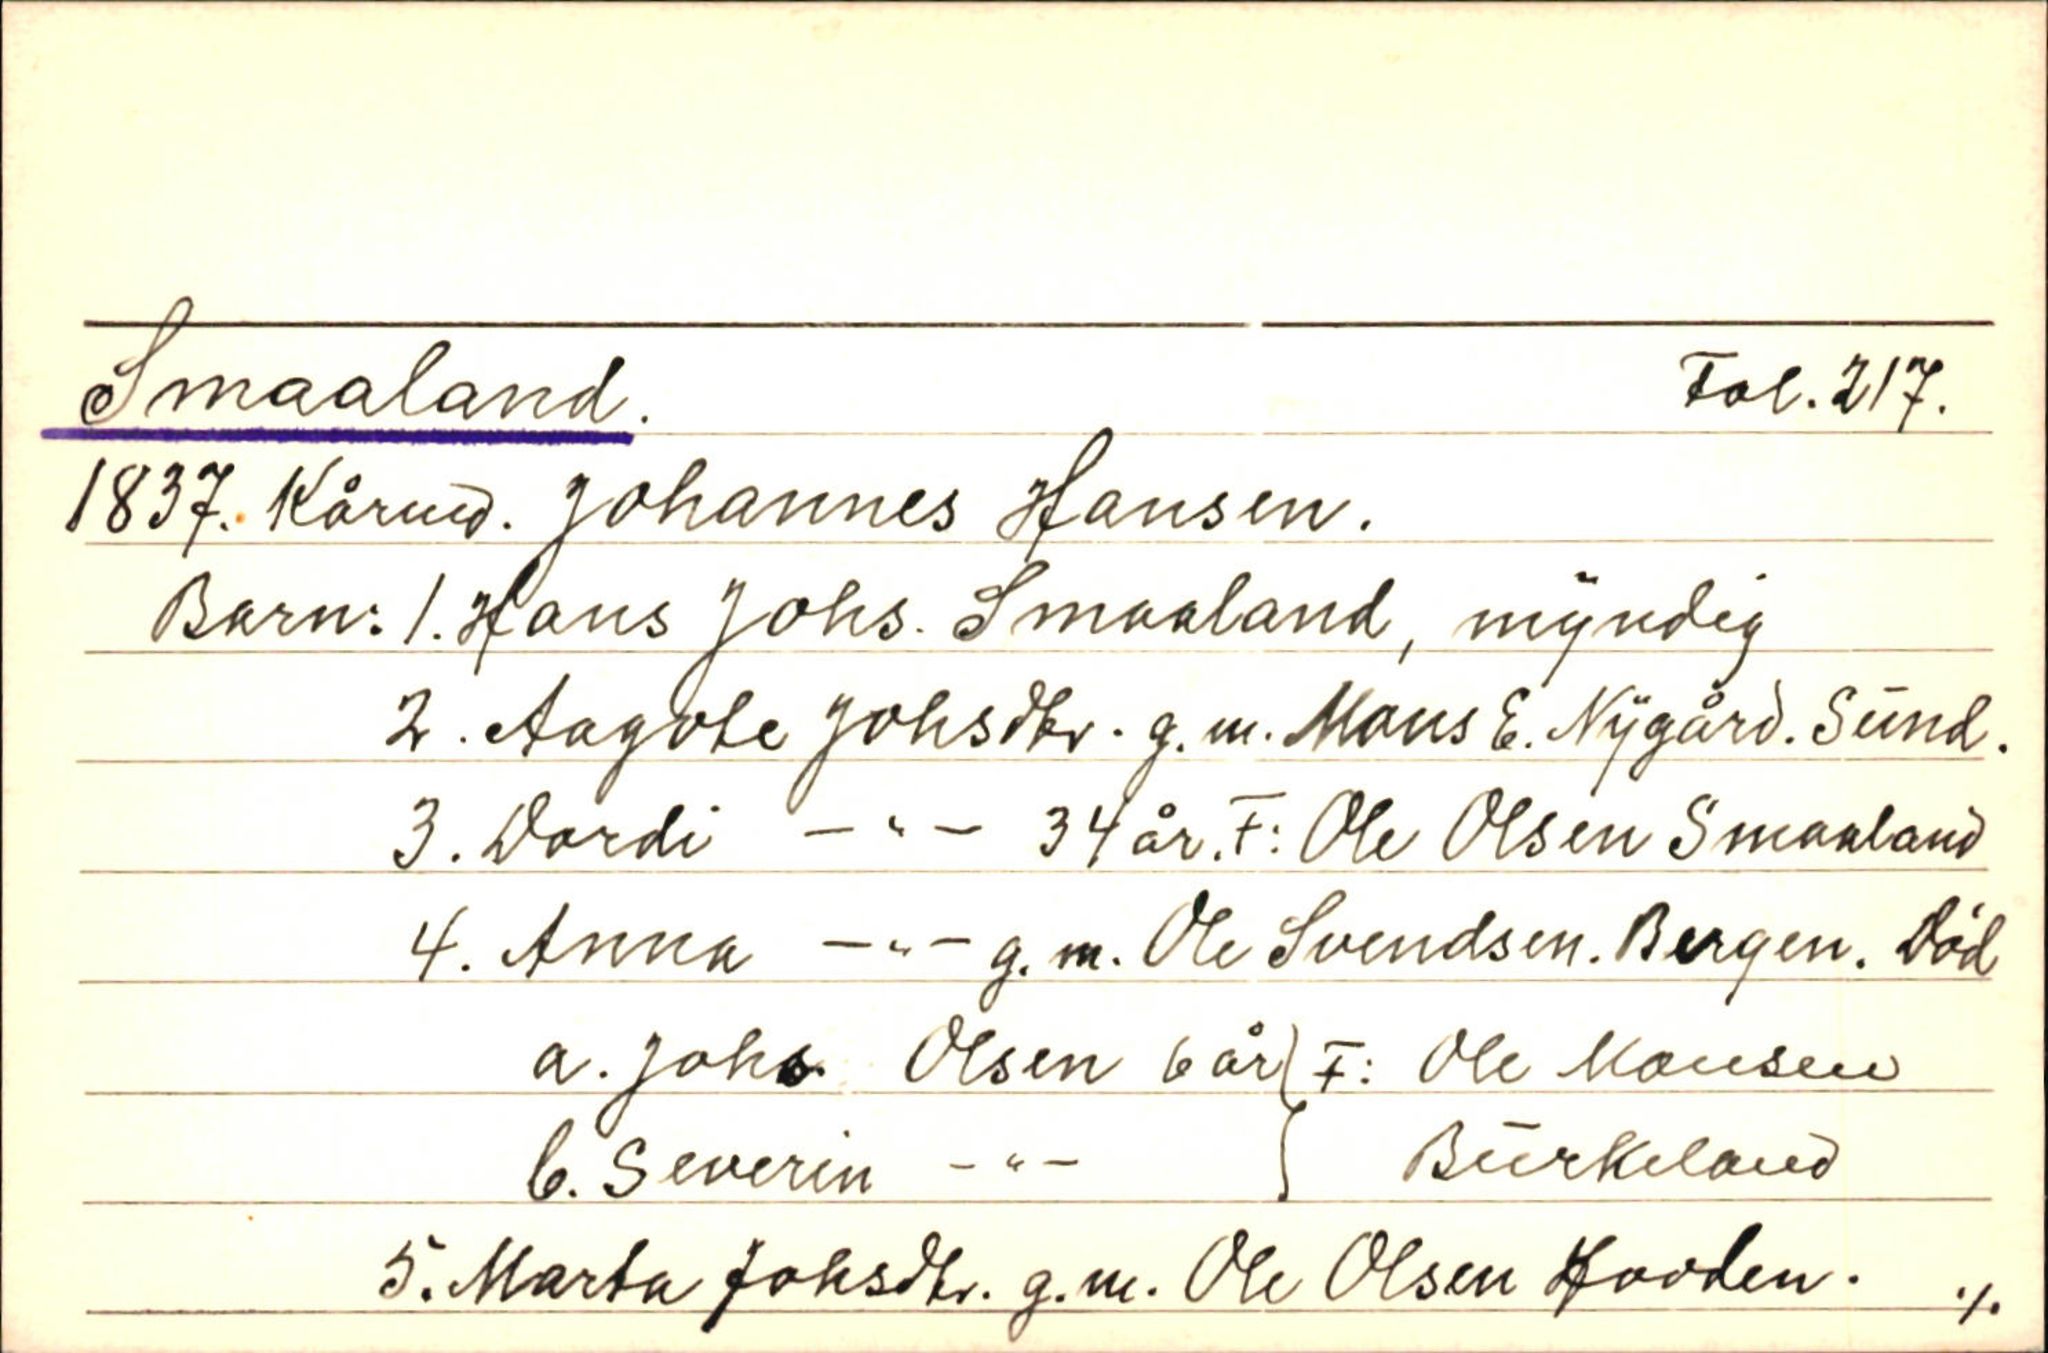 Smaaland. Fol. 217.
1837. Kårmd. Johannes Hansen.
Barn: 1. Hans Johs. Smaaland, myndig
2. Aagote Johsdtr. g.m. Mons E. Nygård. Sund.
3. Dordi —"— 34 år. F: Ole Olsen Smaaland
4. Anna —"— g.m. Ole Svendsen. Bergen. Död
a. Johs. Olsen 6 år } F: Ole Monsen
b. Severin —"— } Burkeland
5. Marta Johsdtr. g.m. Ole Olsen Hovden. ./.